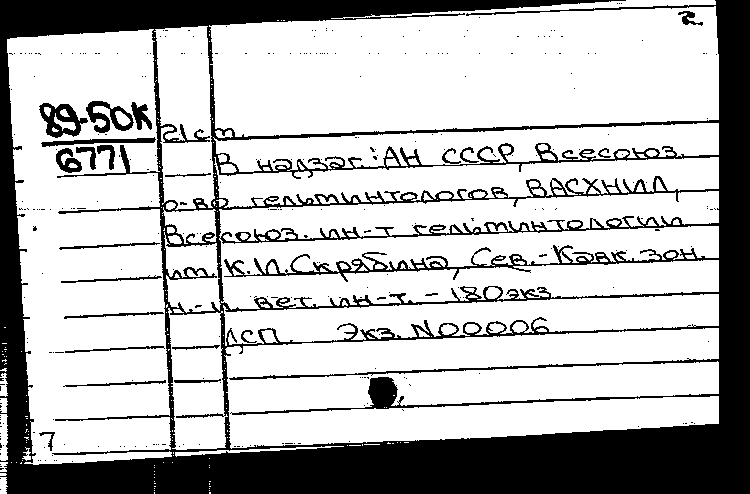 2.
89-50К
6771
21 cm.
В надзаг.: АН СССР, Всесоюз.
о-во гельминтологов, ВАСХНИЛ,
Всесоюз. ин-т гельминтологии
им. К.И.Скрябина, Сев.-Кавк. зон.
н.-и. вет. ин-т. - 180 экз.
ДСП. Экз. N00006
7